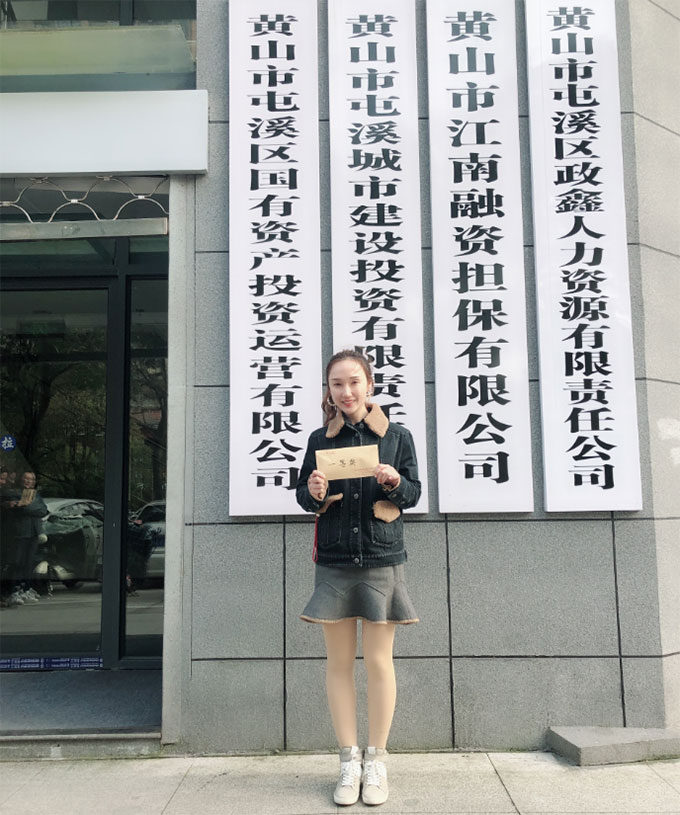 黄山市屯溪区国有资产投资运营有限公司
黄山市屯溪城市建设投资有限责任
黄山市江南融资担保有限公司
黄山市屯溪区政鑫人力资源有限责任公司
一等奖
拉